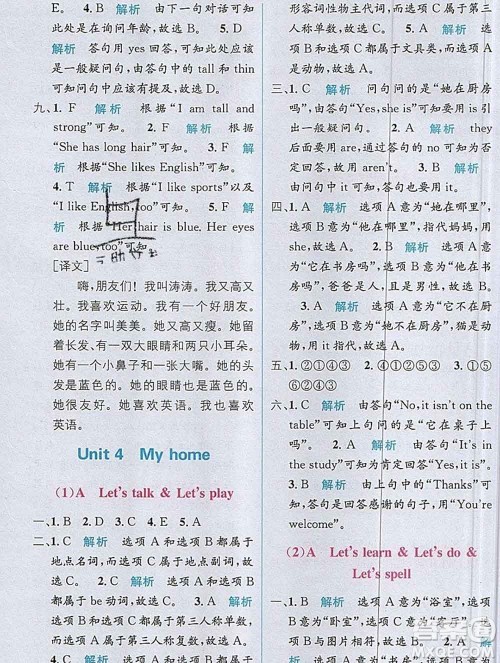 E。 4. B 解析 由下一句对话可知
此处是在询问年龄，故选 B。 5. D
解析 答句用 yes 回答，可知此处应该
是一般疑问句，由答句中的 tall 和 thin
可知问句中应该有提及，故选 D。
九、1. F 解析 根据“I am tall and
strong”可知。 2. F 解析 根据
“She has long hair”可知。 3. F
解析 根据“She likes English”可知。
4. T 解析 根据“I like sports”以及
“I like English, too”可知。 5. F
解析 根据“Her hair is blue. Her eyes
are blue, too”可知。
[译文]
嗨，朋友们！我叫涛涛。我又高又
壮。我喜欢运动。我有一个好朋友。
她的名字叫美美。她又高又瘦。她留
着长发、有一双大眼睛和两只小耳朵。
她还有一个小鼻子和一张大嘴。她的头
发是蓝色的。她的眼睛也是蓝色的。
她很友好。她喜欢英语。我也喜欢
英语。
Unit 4 My home
(1)A Let's talk & Let's play
一、1. B 2. D 3. C 4. E 5. A
二、1. C 解析 选项 A 和选项 B 都属于
地点名词，而选项 C 属于地点副词，故
选 C。 2. A 解析 选项 B 和选项 C
都属于 be 动词，而选项 A 属于代词，
故选 A。 3. A 解析 选项 B 和选项
C 都属于第三人称单数，而选项 A 属
于第三人称复数，故选 A。 4. B
形容词性物主代词，而选项 C 属于第三
人称单数，故选 C。 5. A 解析 选项
B 和选项 C 都属于文具类，而选项 A
是动物，故选 A。
三、1. C 解析 问句问的是“她在厨房
吗”，由答句中“Yes, she is”可知，要用
一般疑问句，故选 C。 2. B 解析 they
后面要用 are，通过答句的 no 可知为否定
回答，故用 aren't。 3. B 解析
由问句中 it 可知，答句也要用 it。
四、1. C 解析 选项 A 意为“他在哪里”，
选项 B 意为“她在哪里”，指代妈妈，用
she，故选 C。 2. A 解析 选项 B 意
为“它在书房吗”，选项 C 意为“她在书
房吗”，爸爸是人，且是男性，故选 A。
3. C 解析 选项 A 意为“它不在厨
房”，选项 B 意为“她不在厨房”，猫是动
物，用 it 指代，故选 C。
五、1. ②①④③ 2. ④①②⑤③ 3. ①
⑥②④③⑤
六、1. C 解析 由答句“No, it isn't on the
table”可知上句问的是“它在桌子上
吗”，故选 C。 2. A 解析 由“It's in
the study”可知为肯定回答“Yes, it is”，
故选 A。 3. B 解析 由上句中“Thanks”可知，
答句是回答感谢的句子，用“You're
welcome”。
(2)A Let's learn & Let's do &
Let's spell
一、1. B 解析 选项 A 意为“浴室”，选项
B 意为“卧室”，选项 C 意为“客厅”，选
项 B 与图片相符，故选 B。 2. A